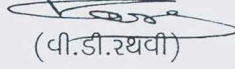 (वी.डी.रथवी)